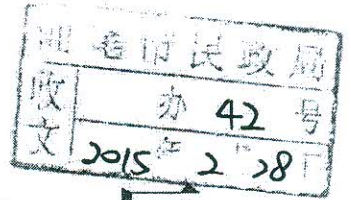 市民政局
收文
办 42 号
2015年2月28日